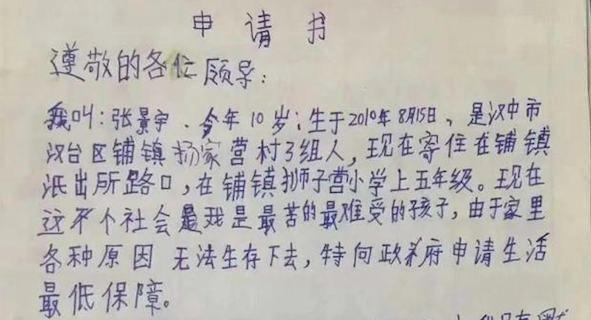 申请书
遵敬的各位领导：
我叫：张景宇、今年10岁；生于2010年8月15日、是汉中市
汉台区铺镇杨家营村3组人，现在寄住在铺镇
派出所路口，在铺镇狮子营小学上五年级。现在
这个社会是我是最苦的最难受的孩子，由于家里
各种原因 无法生存下去，特向政府申请生活
最低保障。